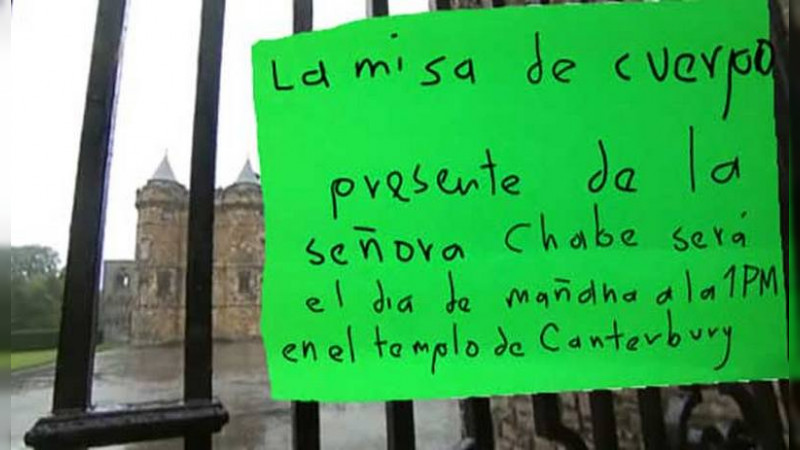 La misa de cuerpo
presente de la
señora Chabe será
el dia de mañana a la 1PM
en el templo de Canterbury